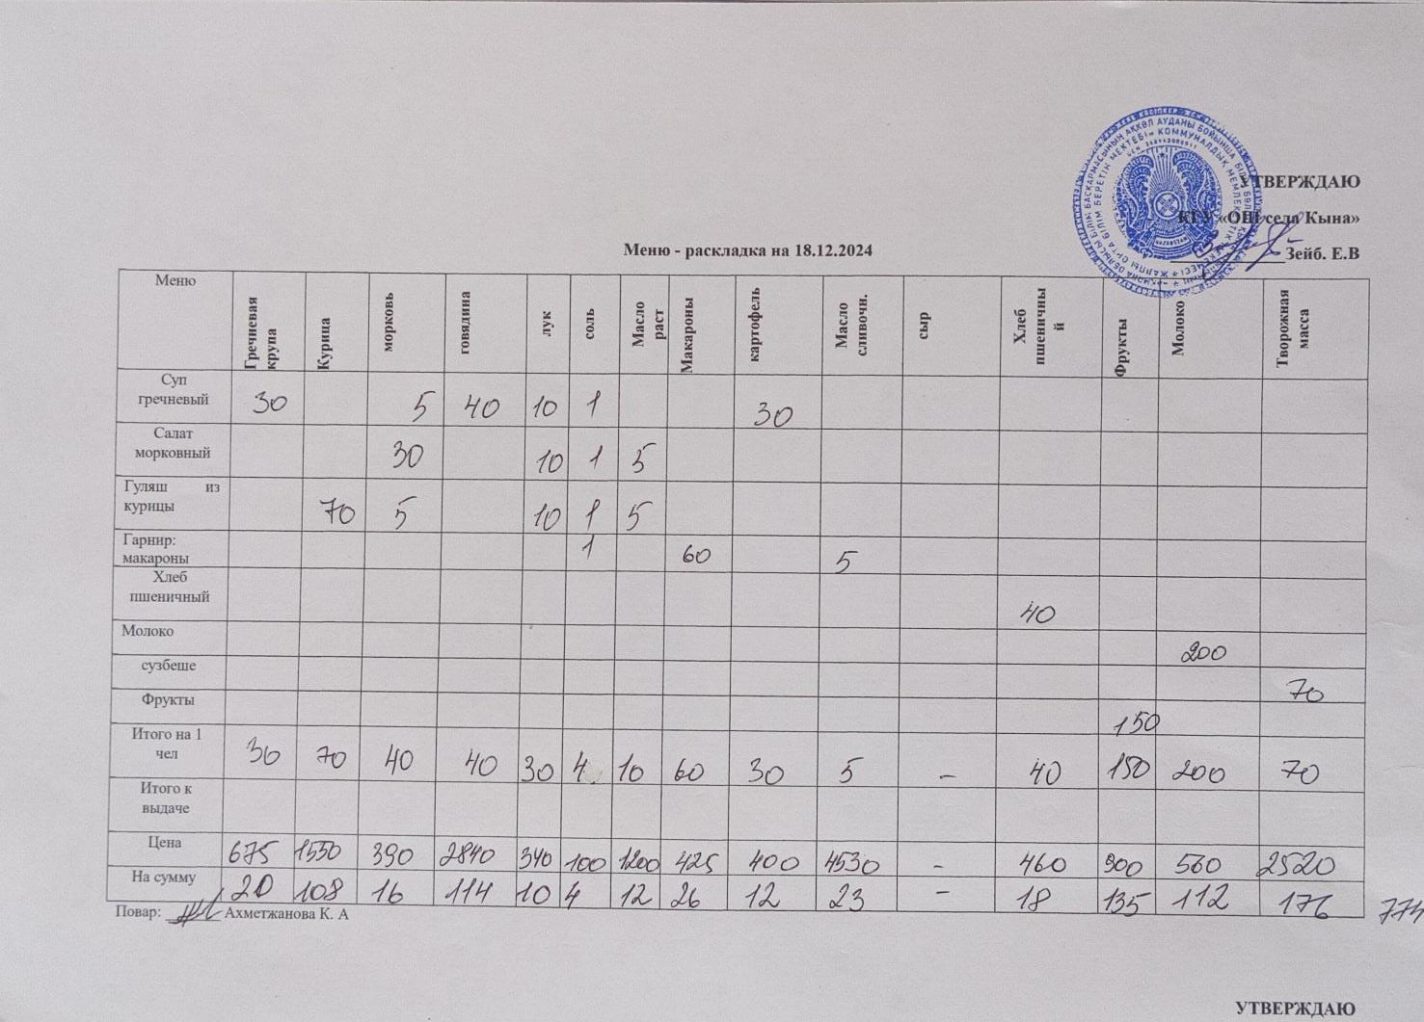 УТВЕРЖДАЮ
КГУ «ОШ села Кына»
Зейб. Е.В
Меню - раскладка на 18.12.2024
Меню Гречневая крупа Курица морковь говядина лук соль Масло раст Макароны картофель Масло сливочн. сыр Хлеб пшеничный Фрукты Молоко Творожная масса
Суп гречневый 30 5 40 10 1 30
Салат морковный 30 10 1 5
Гуляш из курицы 70 5 10 1 5
Гарнир: макароны 1 60 5
Хлеб пшеничный 40
Молоко 200
сузбеше 70
Фрукты 150
Итого на 1 чел 30 70 40 40 30 4 10 60 30 5 – 40 150 200 70
Итого к выдаче
Цена 675 1550 390 2840 340 100 1200 425 400 4530 – 460 900 560 2520
На сумму 20 108 16 114 10 4 12 26 12 23 – 18 135 112 176
Повар: Ахметжанова К. А
УТВЕРЖДАЮ